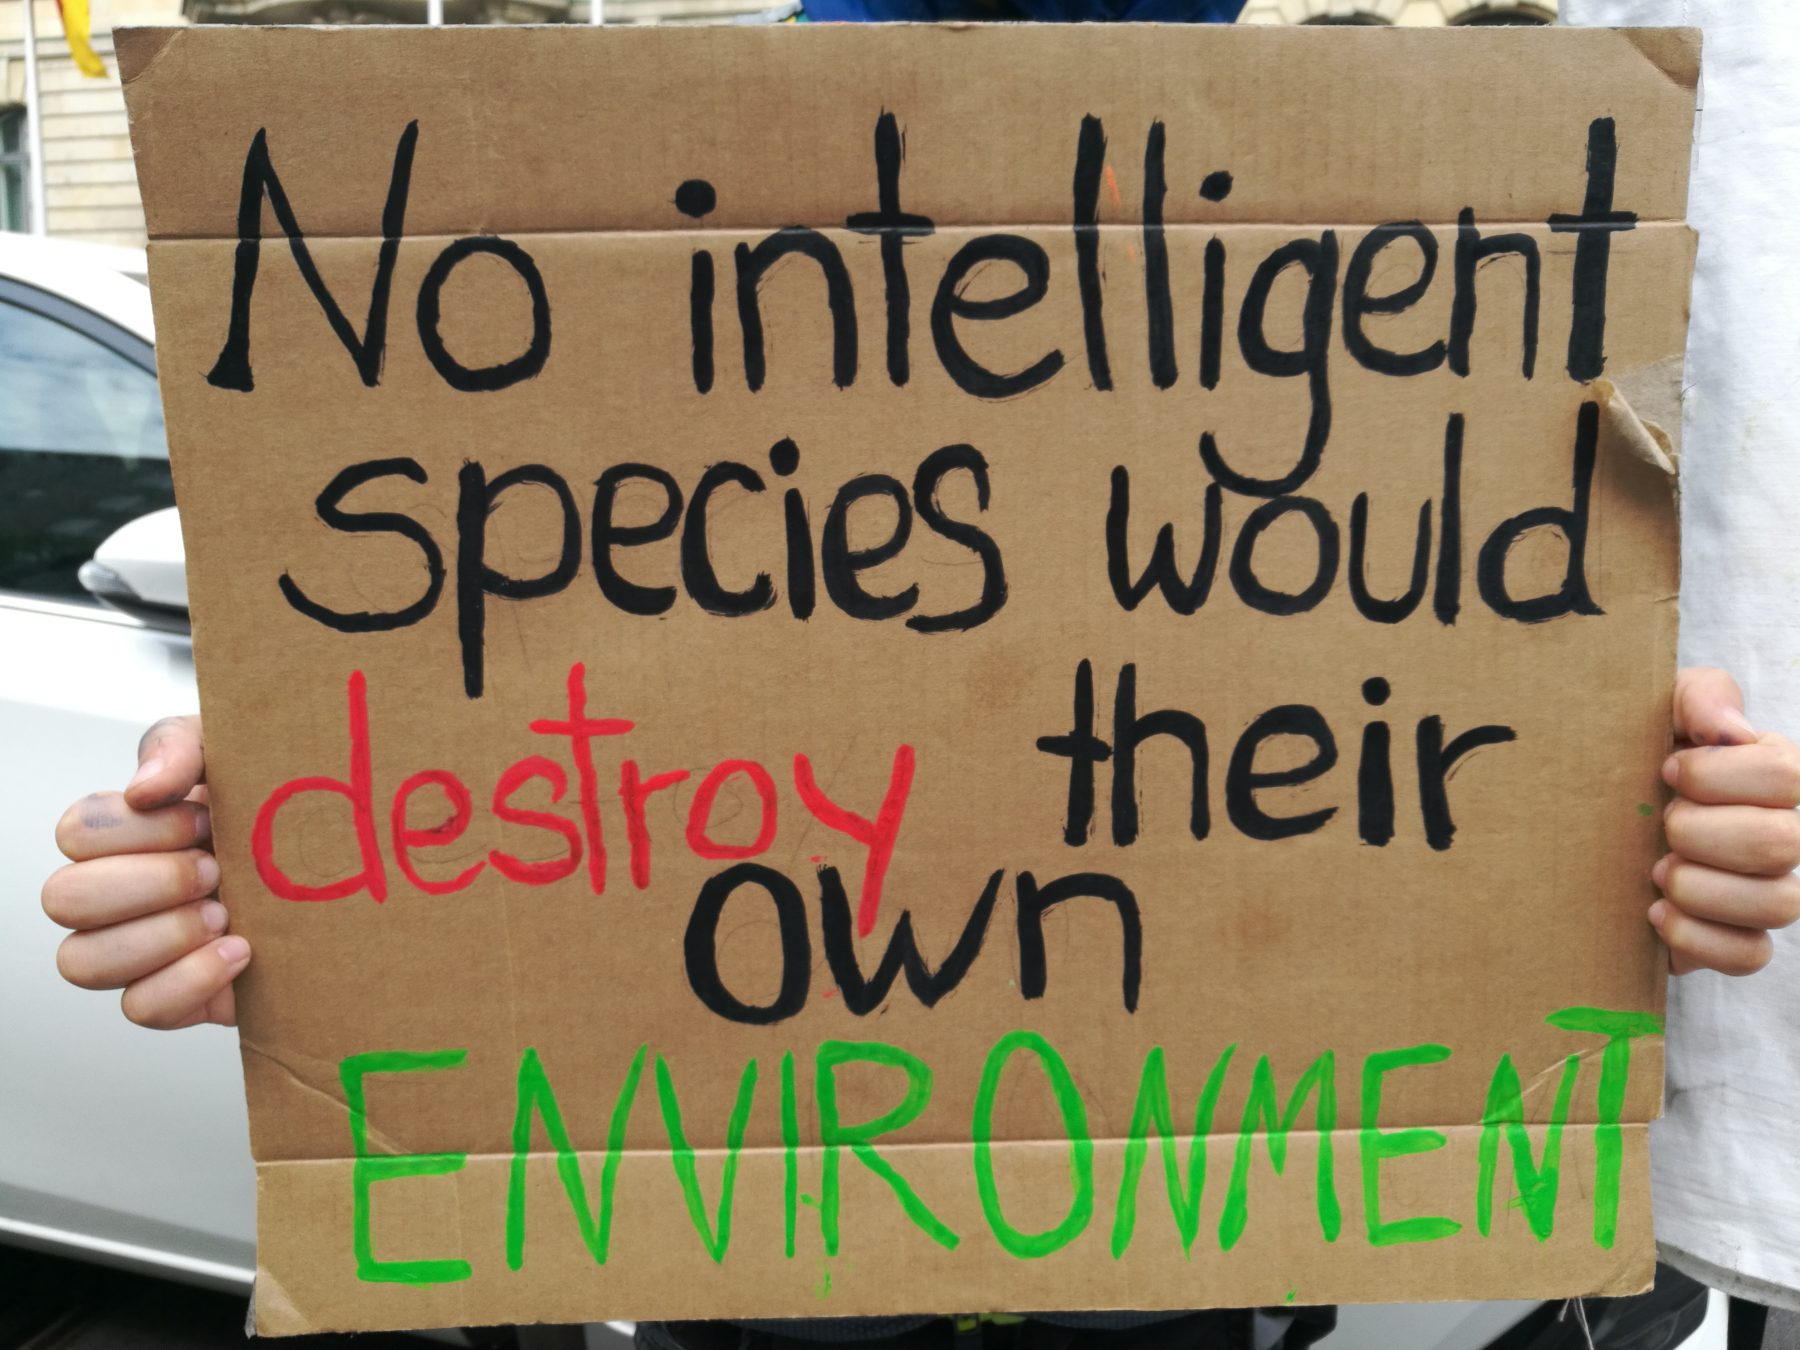 No intelligent
species would
destroy their
own
ENVIRONMENT